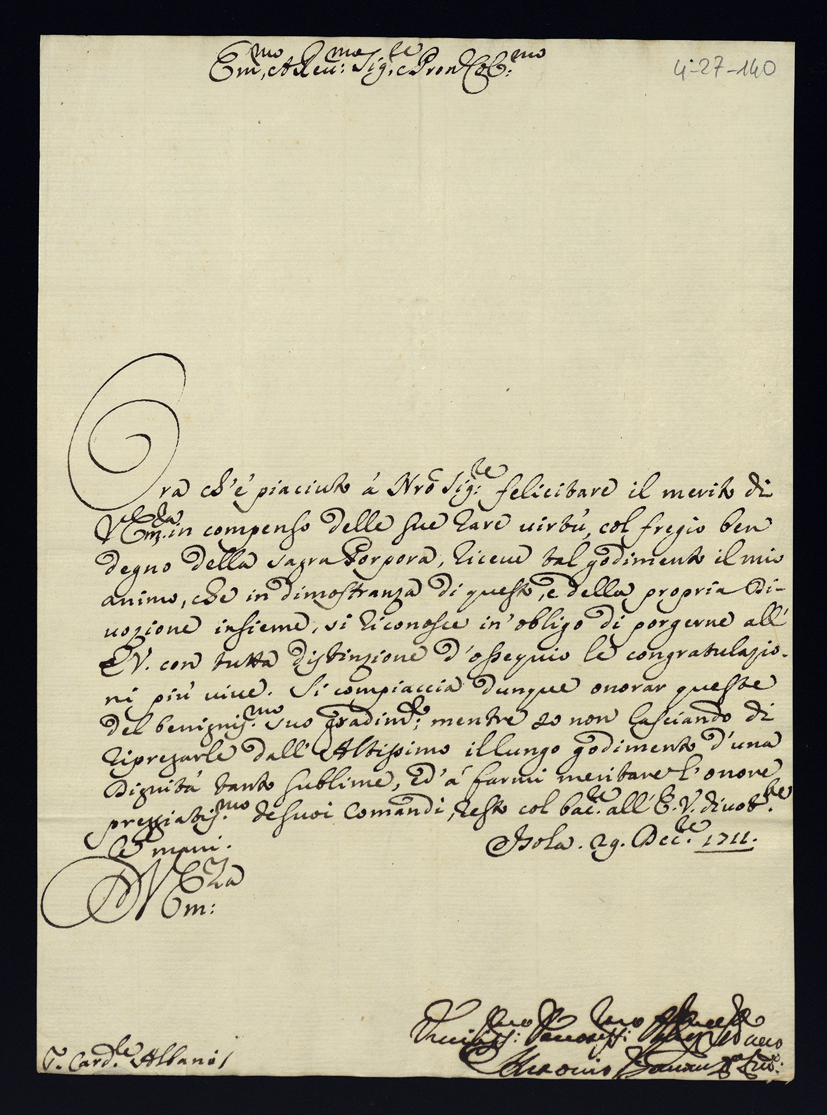 Em.mo, e Reu:mo Sig.re e Pron Col:mo
4-27-140
Ora ch'è piaciuto à Nro Sig:re felicitare il merito di
V. Em:za in compenso delle sue rare virtù, col fregio ben
degno della sagra Porpora, riceve tal godimento il mio
animo, che in dimostranza di questo, e della propria di-
uozione insieme, si riconosce in' obligo di porgerne all'
E.V. con tutta distinzione d'ossequio le congratulazio-
ni più uiue. Si compiaccia dunque onorar queste
del benignis:mo suo gradim:to, mentre io non lasciando di
ripregarle dall' Altissimo il lungo godimento d'una
dignità tanto sublime, ed' à farmi meritare l'onore
preggiatis:mo de suoi comandi, resto col bac:re all' E.V. diuot:te
le mani.
Isola. 29. Dec:re 1711.
D V Eza
Em:
S. Card:le Albani